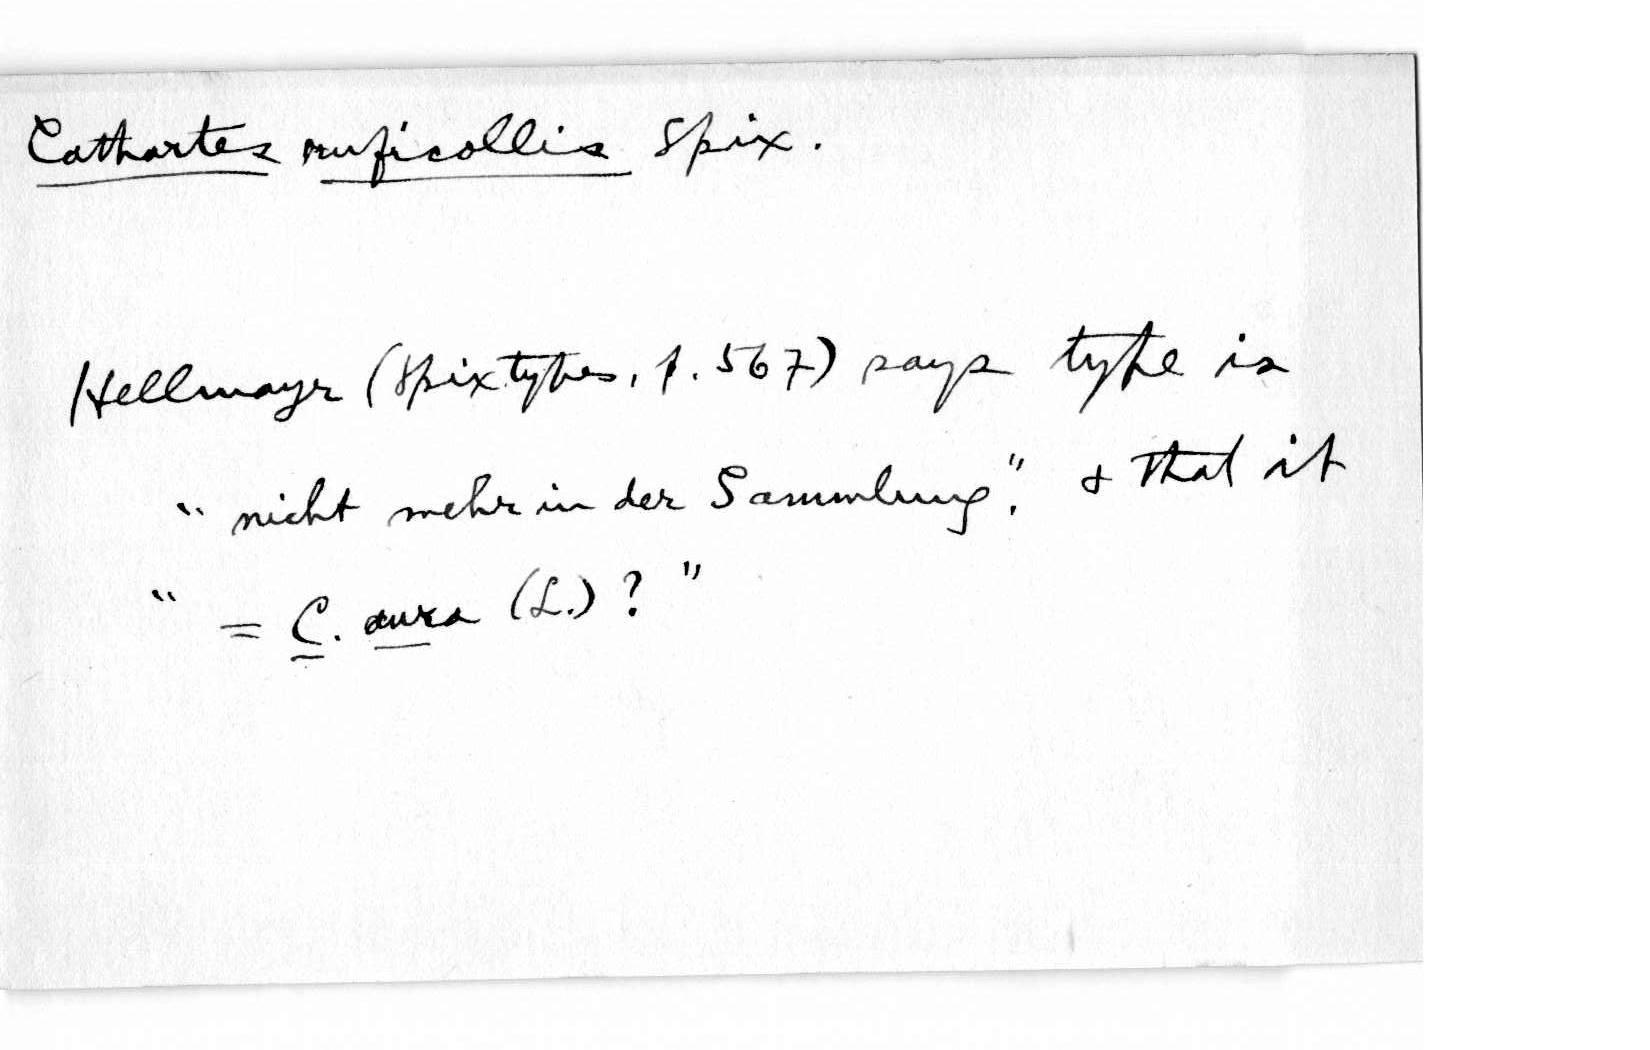 Cathartes ruficollis Spix.
Hellmayr (Spix types, p. 567) says type is
"nicht mehr in der Sammlung". & that it
" = C. aura (L.) ? "